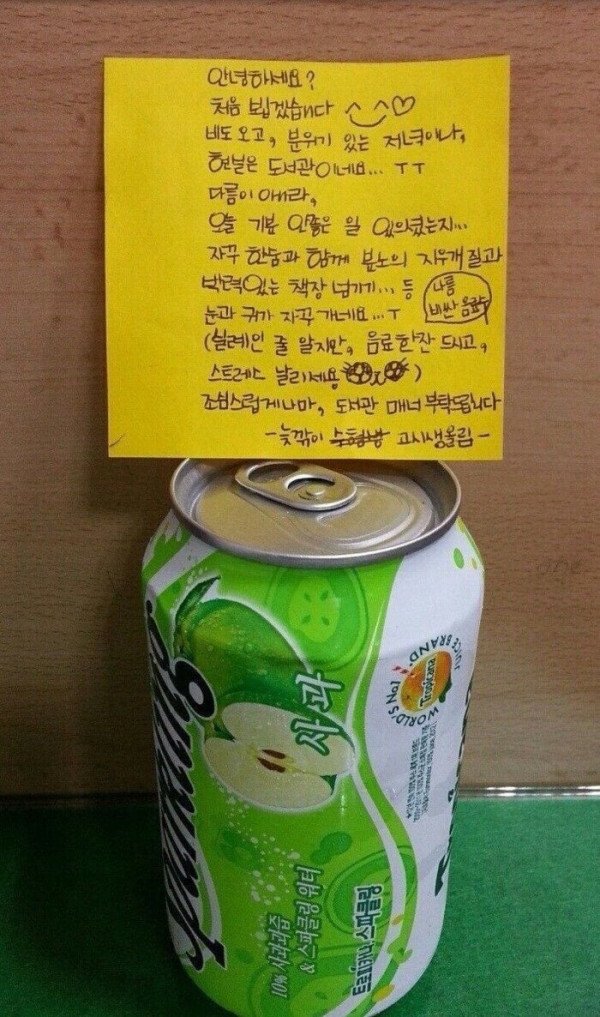 안녕하세요?
처음 뵙겠습니다 ^_^♡
비도 오고, 분위기 있는 저녁이나,
현실은 도서관이네요... ㅜㅜ
다름이 아니라,
오늘 기분 안좋은 일 있으셨는지...
자꾸 한숨과 함께 분노의 지우개질과
박력있는 책장 넘기기... 등
나름 비싼 음료
눈과 귀가 자꾸 가네요...ㅜ
(실례인 줄 알지만, 음료한잔 드시고,
스트레스 날리세용)
조심스럽게나마, 도서관 매너 부탁드립니다
-늦깎이 고시생올림-
Sparkling
사과
10% 사과과즙
& 스파클링 워터
트로피카나 스파클링
WORLD'S No.1
JUICE BRAND
Tropicana